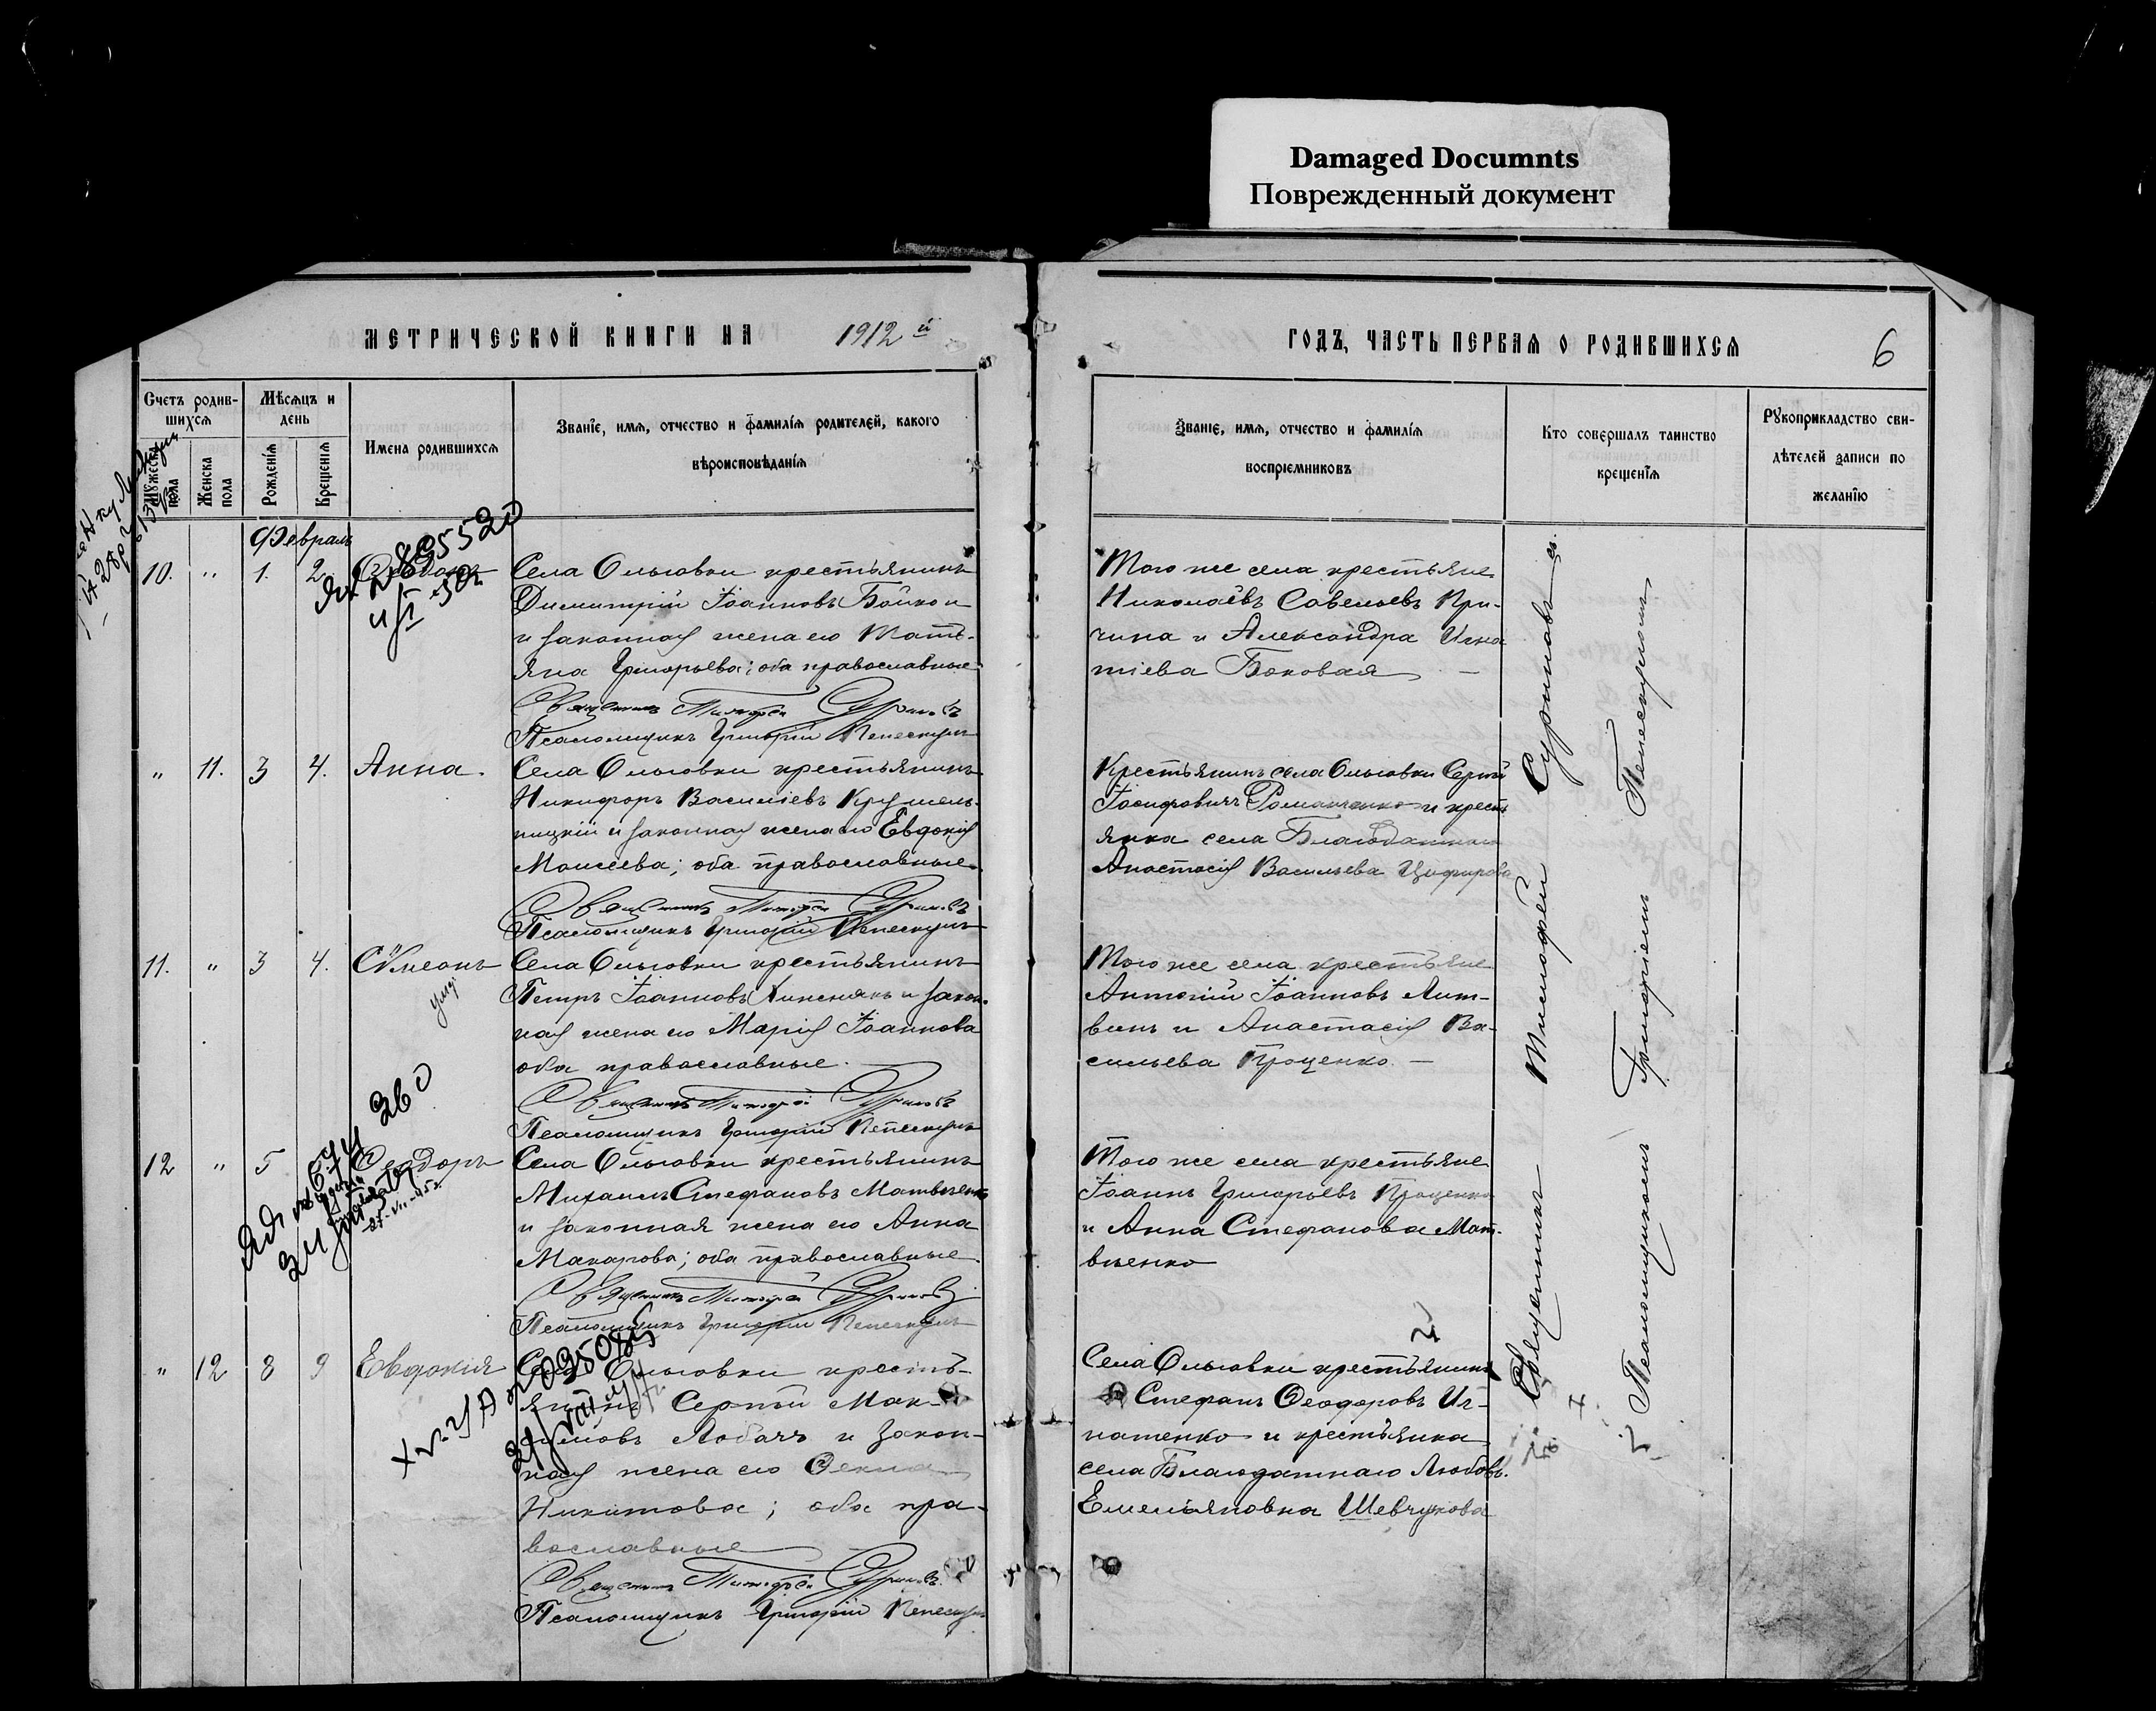 Damaged Documnts
Поврежденный документ
МЕТРИЧЕСКОЙ КНИГИ НА 1912 й
ГОДЪ, ЧАСТЬ ПЕРВАЯ О РОДИВШИХСЯ
6
Счетъ родив-
шихся
Мѣсяцъ и
день
Имена родившихся
Званїе, имя, отчество и фамилїя родителей, какого
вѣроисповѣданїя
Мужеска
пола
Женска
пола
Рожденїя
Крещенїя
Званїе, имя, отчество и фамилїя
воспрїемниковъ
Кто совершалъ таинство
крещенїя
Рукоприкладство сви-
дѣтелей записи по
желанїю
Февраль
10. " 1. 2.
Села Ольговки крестьянинъ
Димитрій Іоанновъ Бойко и
и законная жена его Тать-
яна Григорьева; оба православные
Священникъ Тимофей Суриновъ
Псаломщикъ Григорій Пепескулъ
Того же села крестьяне
Николаевъ Савельевъ При-
чина и Александра Игна
тіева Боковая —
" 11. 3 4. Анна.
Села Ольговки крестьянинъ
Никифоръ Василіевъ Крушель-
ницкій и законная жена его Евдокія
Моисеева; оба православные.
Священникъ Тимофей Суриновъ
Псаломщикъ Григорій Пепескулъ
Крестьянинъ села Ольговки Сергій
Іосифовичъ Романченко и кресть
янка села Благодатнаго
Анастасія Васильева
11. " 3 4. Сѵмеонъ
умер
Села Ольговки крестьянинъ
Петръ Іоанновъ и закон-
ная жена его Марія Іоаннова
оба православные.
Священникъ Тимофей Суриновъ
Псаломщикъ Григорій Пепескулъ
Того же села крестьяне
Антоній Іоанновъ Лит-
винъ и Анастасія Ва-
сильева Проценко. —
12 " 5 Ѳеодоръ
Села Ольговки крестьянинъ
Михаилъ Стефановъ Матвѣенко
и законная жена его Анна
Макарова; оба православные
Священникъ Тимофей Суриновъ
Псаломщикъ Григорій Пепескулъ
Того же села крестьяне
Іоаннъ Григорьевъ Проценко
и Анна Стефанова Мат-
вѣенко
" 12 8 9 Евдокія
Села Ольговки кресть-
янинъ Сергій Мак-
симовъ Лобачъ и закон-
ная жена его Ѳекла
Никитова; оба пра-
вославные
Священникъ Тимофей Суриновъ
Псаломщикъ Григорій Пепескулъ
Села Ольговки крестьянинъ
Стефанъ Ѳеодоровъ Иг-
натенко и крестьянка
села Благодатнаго Любовь
Емельяновна Шевчукова
Священникъ Тимофей Суриновъ
Псаломщикомъ Григоріемъ Пепескуломъ